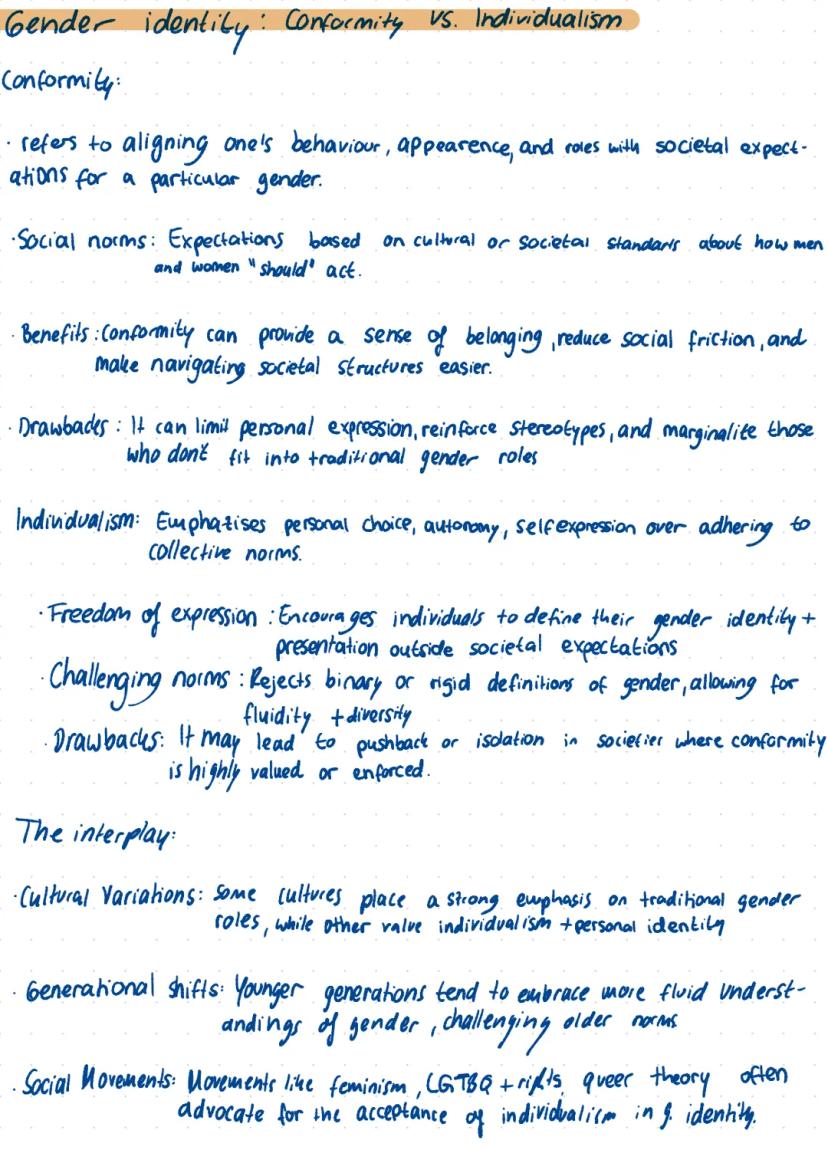 Gender identity: Conformity vs. Individualism
Conformity:
· refers to aligning one's behaviour, appearence, and roles with societal expect-
ations for a particular gender.
· Social norms: Expectations based on cultural or societal standarts about how men
and women "should" act.
· Benefits: Conformity can provide a sense of belonging, reduce social friction, and
make navigating societal structures easier.
· Drawbacks: It can limit personal expression, reinforce stereotypes, and marginalite those
who don't fit into traditional gender roles
Individualism: Emphatises personal choice, autonomy, selfexpression over adhering to
collective norms.
· Freedom of expression: Encourages individuals to define their gender identity +
presentation outside societal expectations
· Challenging norms: Rejects binary or rigid definitions of gender, allowing for
fluidity + diversity
· Drawbacks: It may lead to pushback or isolation in societies where conformity
is highly valued or enforced.
The interplay:
· Cultural Variations: some cultures place a strong emphasis on traditional gender
roles, while other value individualism + personal identity
· Generational shifts: Younger generations tend to embrace more fluid underst-
andings of gender, challenging older norms
· Social Movements: Movements like feminism, LGTBQ + rights, queer theory often
advocate for the acceptance of individualism in g. identity.